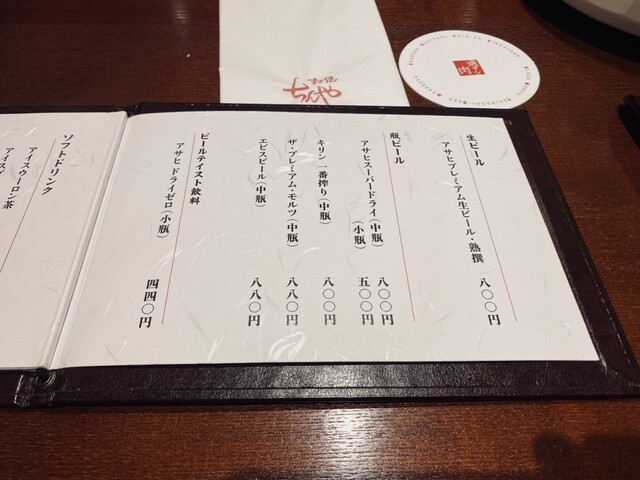 すき焼
ちんや
生ビール
アサヒプレミアム生ビール・熟撰 八〇〇円
瓶ビール
アサヒスーパードライ(中瓶) 八〇〇円
(小瓶) 五〇〇円
キリン 一番搾り(中瓶) 八〇〇円
ザ・プレミアム・モルツ(中瓶) 八八〇円
エビスビール(中瓶) 八八〇円
ビールテイスト飲料
アサヒ ドライゼロ(小瓶) 四四〇円
ソフトドリンク
アイスウーロン茶